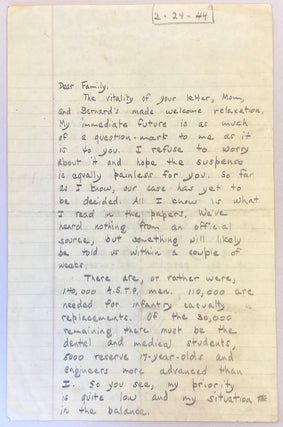 2-24-44
Dear Family,
The vitality of your letter, Mom,
and Bernard's made welcome relaxation.
My immediate future is as much
of a question-mark to me as it
is to you. I refuse to worry
about it and hope the suspense
is equally painless for you. So far
as I know, our case has yet to
be decided. All I know is what
I read in the papers. We've
heard nothing from an official
source, but something will likely
be told us within a couple of
weeks.
There are, or rather were,
140,000 A.S.T.P. men. 110,000 are
needed for infantry casualty
replacements. Of the 30,000
remaining there must be the
dental and medical students,
5000 reserve 17-year-olds and
engineers more advanced than
I. So you see, my priority
is quite low and my situation
in the balance.